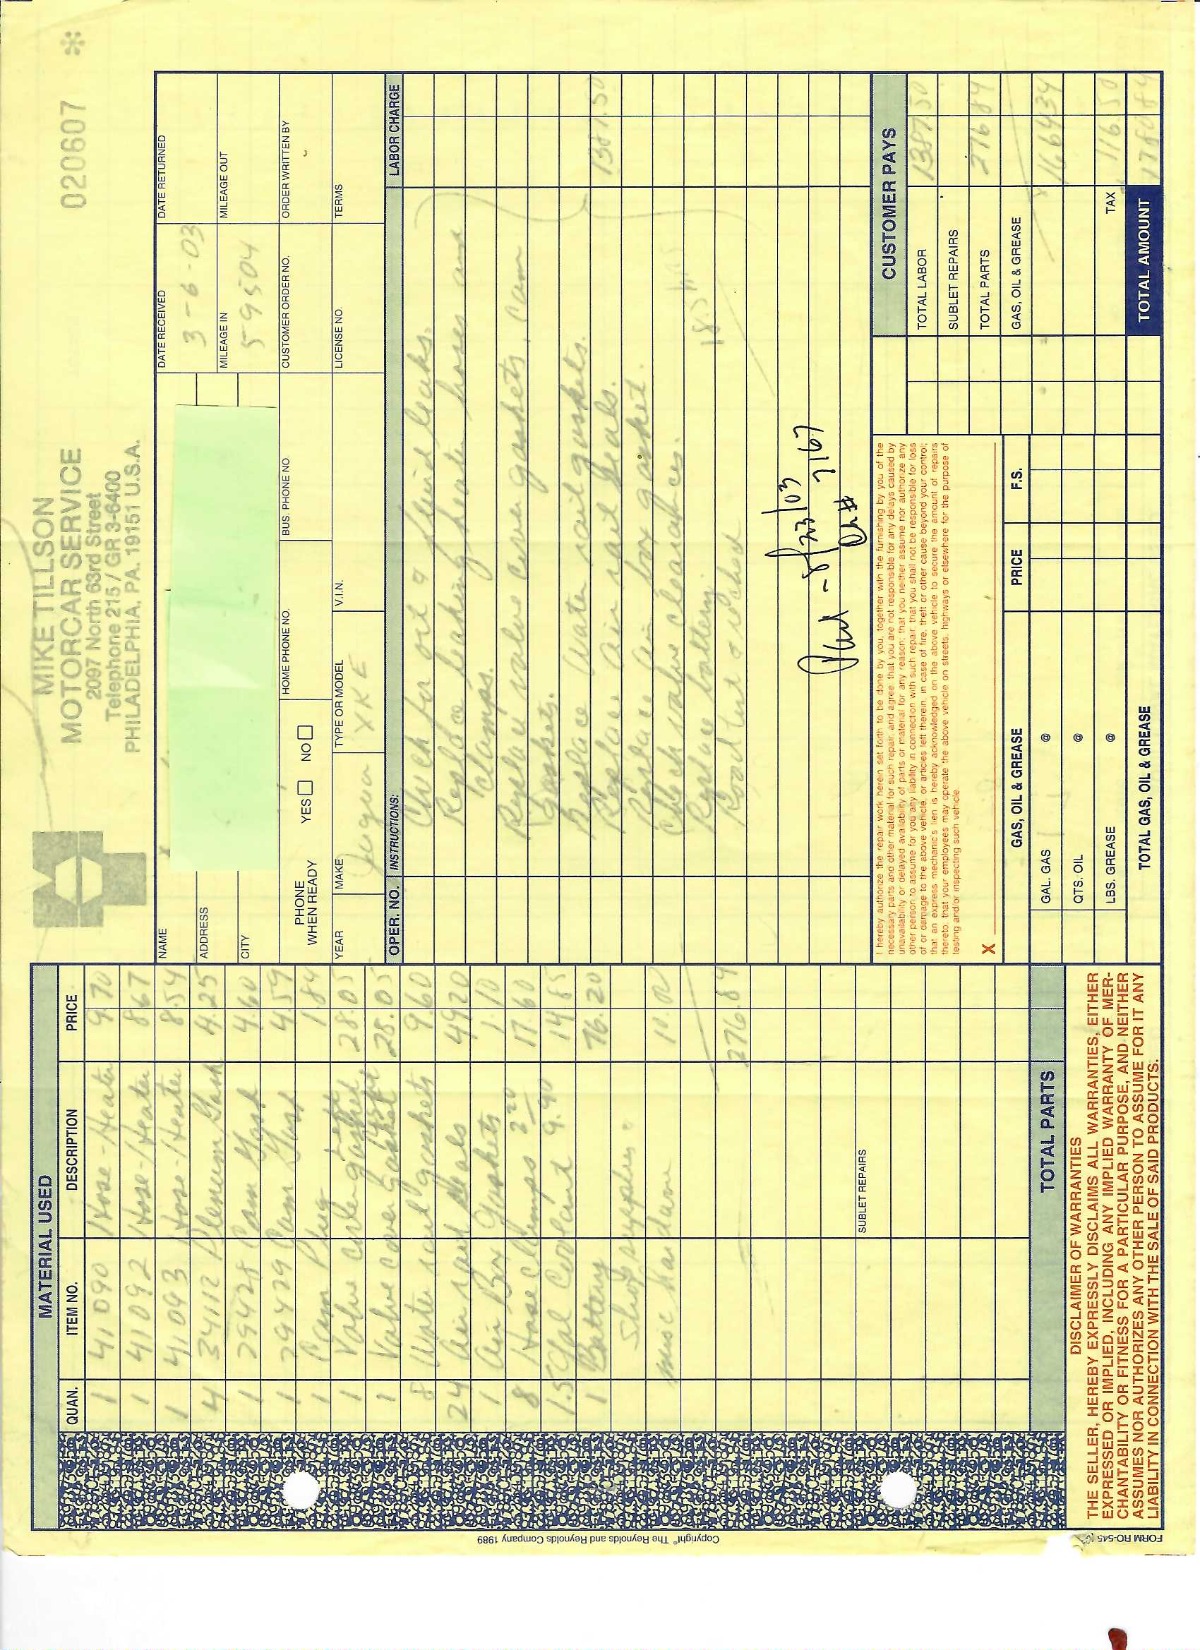 MIKE TILLSON
MOTORCAR SERVICE
2097 North 63rd Street
Telephone 215 / GR 3-6400
PHILADELPHIA, PA. 19151 U.S.A.
020607
*
NAME
DATE RECEIVED 3-6-03
DATE RETURNED
ADDRESS
MILEAGE IN 59504
MILEAGE OUT
CITY
PHONE WHEN READY YES NO
HOME PHONE NO.
BUS. PHONE NO
CUSTOMER ORDER NO.
ORDER WRITTEN BY
YEAR
MAKE Jaguar
TYPE OR MODEL XKE
V.I.N.
LICENSE NO.
TERMS
OPER. NO. INSTRUCTIONS: LABOR CHARGE
Check for oil & fluid leaks.
Replace leaking heater hoses and
clamps.
Replace valve cover gaskets, cam
gaskets.
Replace water rail gaskets. 1387.50
Replace air rail seals.
Replace air box gasket.
Check valve clearances.
Replace battery
Road test & recheck
Paid - 8/23/03
Ck# 7167
MATERIAL USED
QUAN. ITEM NO. DESCRIPTION PRICE
1 41090 Hose-Heater 9.70
1 41092 Hose-Heater 8.67
1 41093 Hose-Heater 8.54
4 34112 Plenum Gask 4.25
1 29428 Cam Gask 4.60
1 29429 Cam Gask 4.59
1 Cam Plug 1.84
1 Valve Cover Gasket 28.05
1 Valve Cover Gasket 28.05
8 Water rail gaskets 9.60
24 air rail seals 49.20
1 Air Box Gaskets 1.10
8 Hose Clamps 2.20 17.60
1.5 Gal Coolant 9.90 14.85
1 Battery 76.20
Shop supplies
misc hardware 10.00
276.84
SUBLET REPAIRS
TOTAL PARTS
I hereby authorize the repair work herein set forth to be done by you, together with the furnishing by you of the
necessary parts and other material for such repair, and agree: that you are not responsible for any delays caused by
unavailability or delayed availability of parts or material for any reason; that you neither assume nor authorize any
other person to assume for you any liability in connection with such repair; that you shall not be responsible for loss
of or damage to the above vehicle, or articles left therein, in case of fire, theft or other cause beyond your control;
that an express mechanic's lien is hereby acknowledged on the above vehicle to secure the amount of repairs
thereto; that your employees may operate the above vehicle on streets, highways or elsewhere for the purpose of
testing and/or inspecting such vehicle.
X
GAS, OIL & GREASE PRICE F.S.
GAL. GAS @
QTS. OIL @
LBS. GREASE @
TOTAL GAS, OIL & GREASE
CUSTOMER PAYS
TOTAL LABOR 1387.50
SUBLET REPAIRS
TOTAL PARTS 276.84
GAS, OIL & GREASE
1664.34
TAX 116.50
TOTAL AMOUNT 1780.84
DISCLAIMER OF WARRANTIES
THE SELLER, HEREBY EXPRESSLY DISCLAIMS ALL WARRANTIES, EITHER
EXPRESSED OR IMPLIED, INCLUDING ANY IMPLIED WARRANTY OF MER-
CHANTABILITY OR FITNESS FOR A PARTICULAR PURPOSE, AND NEITHER
ASSUMES NOR AUTHORIZES ANY OTHER PERSON TO ASSUME FOR IT ANY
LIABILITY IN CONNECTION WITH THE SALE OF SAID PRODUCTS.
Copyright The Reynolds and Reynolds Company 1989
FORM RO-545